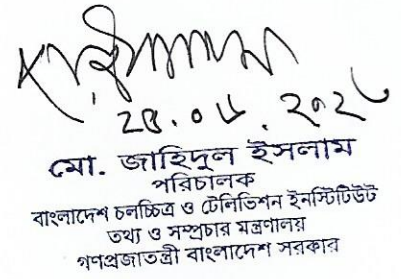 ২৪.০৬.২০২৬
মো. জাহিদুল ইসলাম
পরিচালক
বাংলাদেশ চলচ্চিত্র ও টেলিভিশন ইনস্টিটিউট
তথ্য ও সম্প্রচার মন্ত্রণালয়
গণপ্রজাতন্ত্রী বাংলাদেশ সরকার